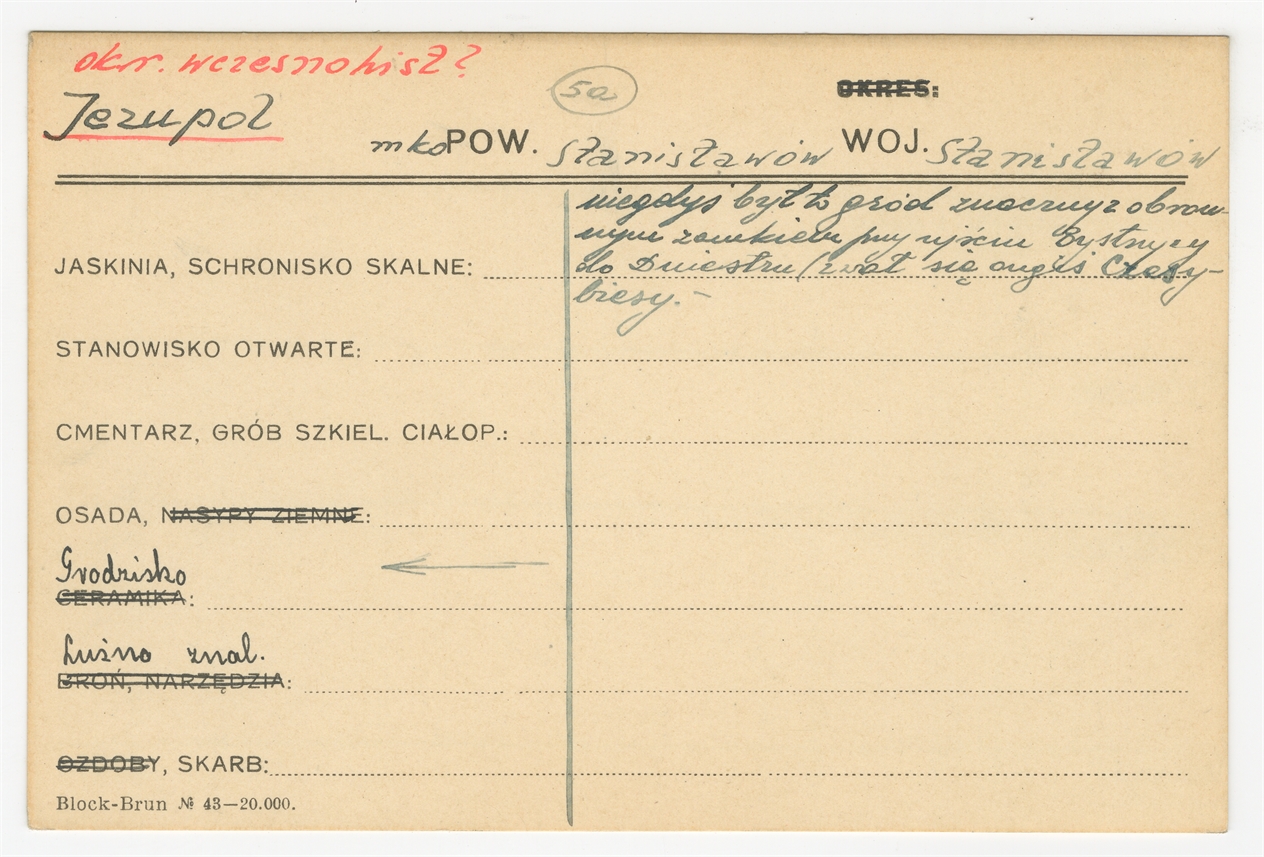 okr. wczesnohist?
5a
OKRES:
Jezupol
mko POW. Stanisławów WOJ. Stanisławów
niegdyś był to gród znaczny z obron-
nym zamkiem przy ujściu Bystrzycy
JASKINIA, SCHRONISKO SKALNE: do Dniestru (zwał się ongiś Czesy-
biesy.-
STANOWISKO OTWARTE:
CMENTARZ, GRÓB SZKIEL. CIAŁOP.:
OSADA, NASYPY ZIEMNE:
Grodzisko
CERAMIKA:
Luźno znal.
BROŃ, NARZĘDZIA:
OZDOBY, SKARB:
Block-Brun № 43—20.000.